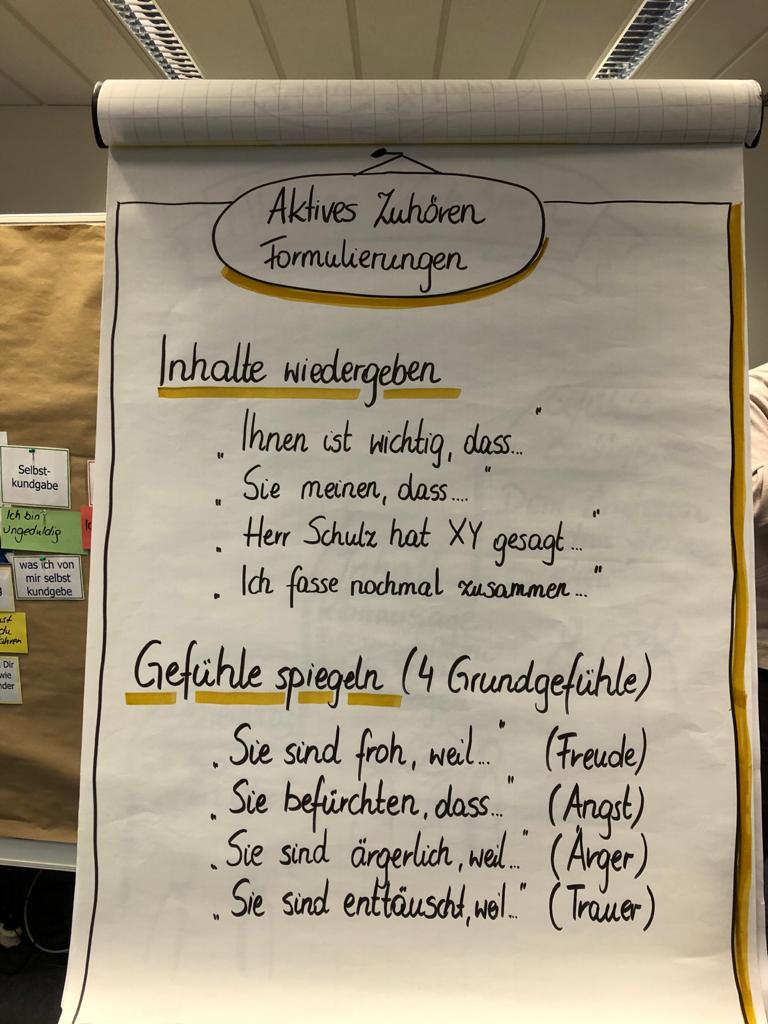 Aktives Zuhören
Formulierungen
Inhalte wiedergeben
„Ihnen ist wichtig, dass..."
„Sie meinen, dass...."
„Herr Schulz hat XY gesagt..."
„Ich fasse nochmal zusammen..."
Gefühle spiegeln (4 Grundgefühle)
„Sie sind froh, weil..." (Freude)
„Sie befürchten, dass..." (Angst)
„Sie sind ärgerlich, weil..." (Ärger)
„Sie sind enttäuscht, weil..." (Trauer)
Selbst-
kundgabe
Ich bin
ungeduldig
was ich von
mir selbst
kundgebe
du
Dir
wie